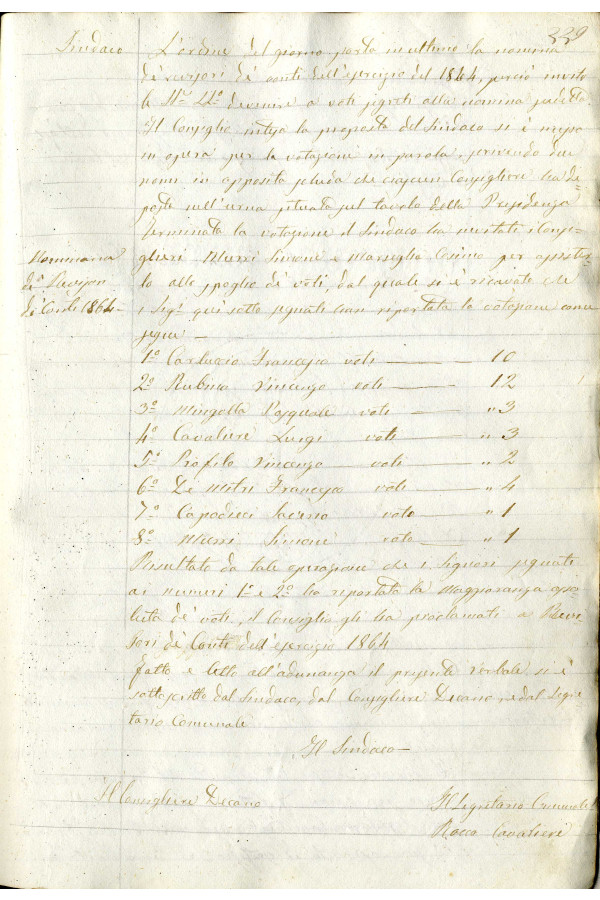 339
Sindaco L'ordine del giorno porta in ultimo la nomina
di revisori di conti dell'esercizio del 1864, perciò invito
le devenire a voti segreti alla nomina sudetta.
Il Consiglio intesa la proposta del Sindaco si è messo
in opera per la votazione in parola, scrivendo due
nomi in apposita scheda che ciascun Consigliere ha de-
posto nell'urna situata sul tavolo della Presidenza
Terminata la votazione il Sindaco ha invitati i Consi-
glieri Murri Simone e Marseglia Cosimo per assister-
lo allo spoglio di voti, dal quale si è ricavato che
i Sigri qui sotto segnati han riportata la votazione come
segue —
Nomina
di Revisori
di Conti 1864 —
1º Carluccio Francesco voti — 10
2º Rubino Vincenzo voti — 12
3º Mingolla Pasquale voti — " 3
4º Cavaliere Luigi voti — " 3
5º Profilo Vincenzo voti — " 2
6º De Mitri Francesco voti — " 4
7º Capodieci voto — " 1
8º Murri Simone voto — " 1
Risultato da tale operazione che i Signori segnati
ai numeri 1º e 2º ha riportata la maggioranza asso-
luta di voti, il Consiglio gli ha proclamati a Revi-
sori di Conti dell'esercizio 1864
Fatto e letto all'adunanza il presente verbale si è
sottoscritto dal Sindaco, dal Consigliere Decano, e dal Segre-
tario Comunale
Il Sindaco —
Il Consigliere Decano
Il Segretario Comunale
Rocco Cavaliere